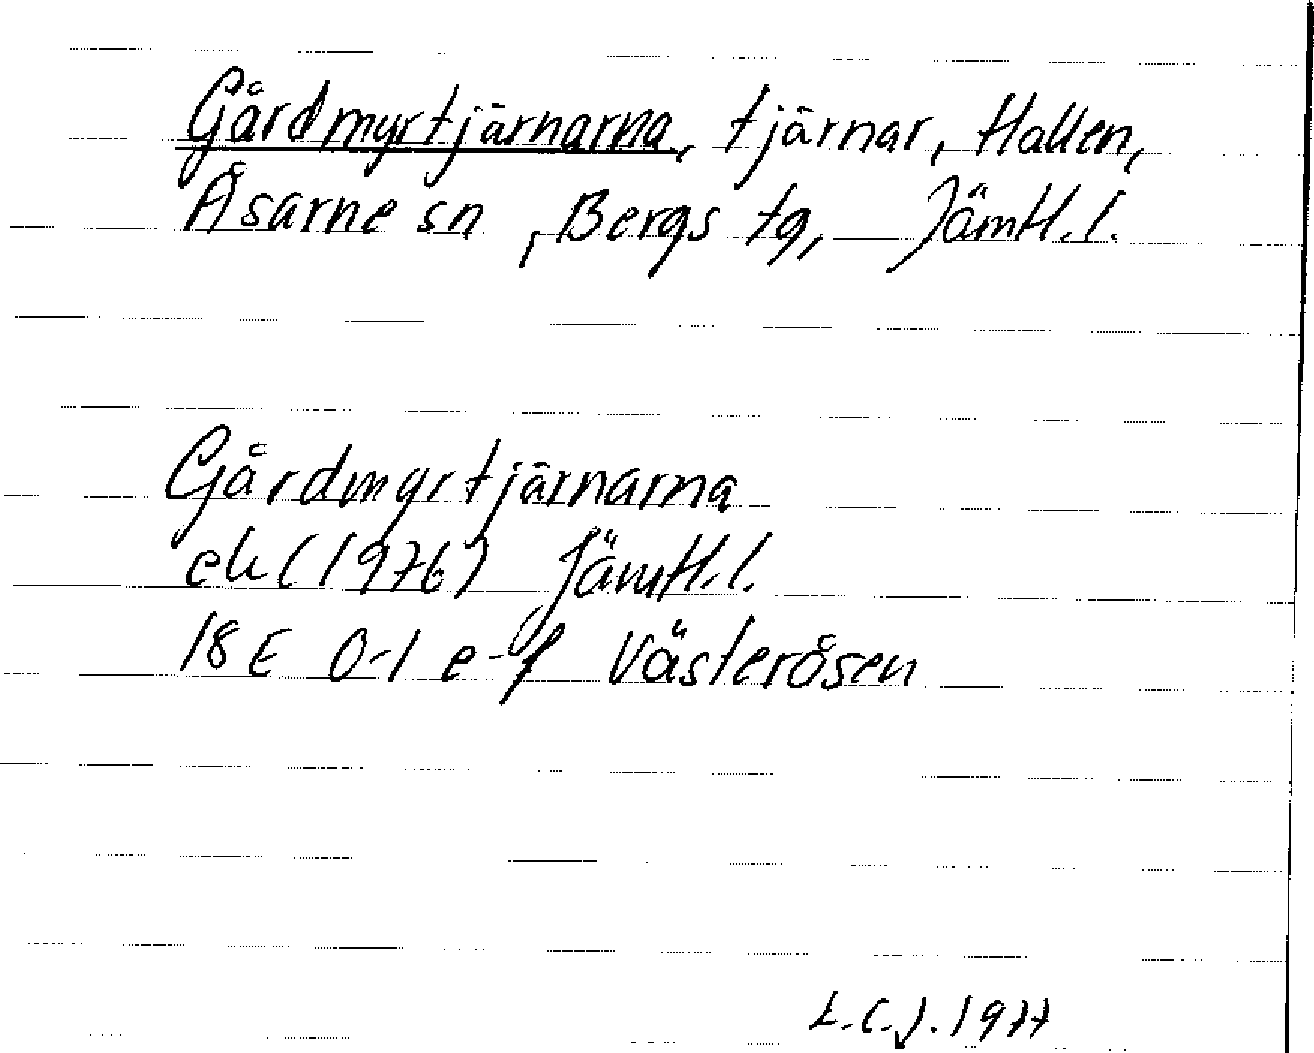 Gårdmyrtjärnarna, tjärnar, Hallen,
Åsarne sn, Bergs tg, Jämtl.l.
Gårdmyrtjärnarna
ek (1976) Jämtl.l.
18E 0-1 e-f Västeråsen
L.C.J. 1977